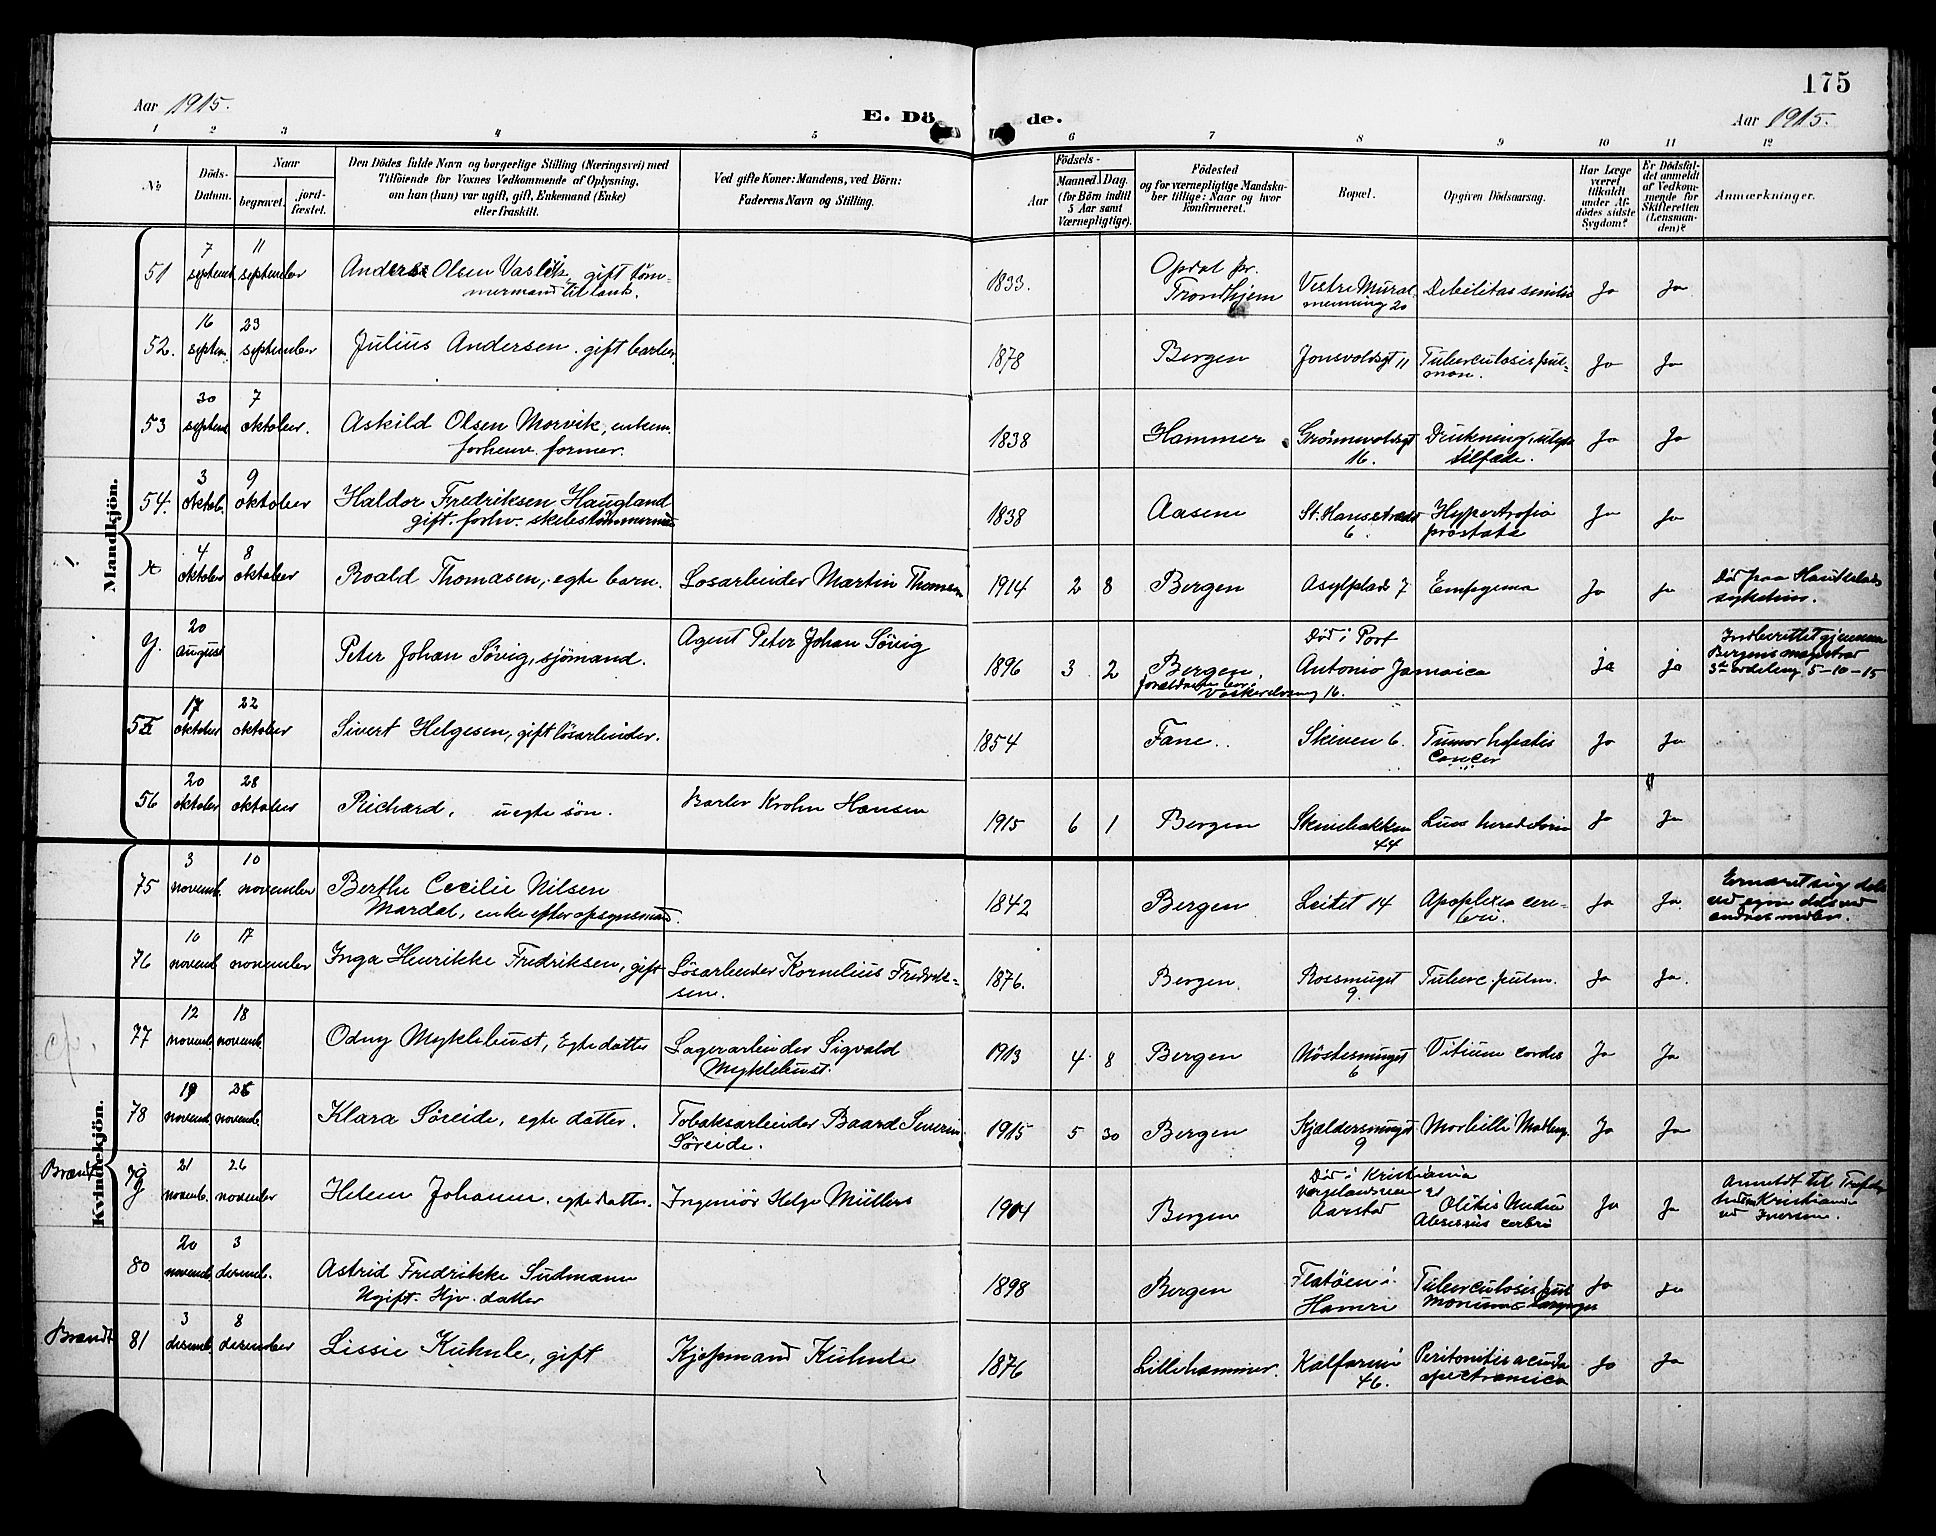 175
Aar 1915.
E. Dö de.
Aar 1915.
1 2 3 4 5 6 7 8 9 10 11 12
№
Döds-
Datum.
Naar
begravet.
jord-
fæstet.
Den Dödes fulde Navn og borgerlige Stilling (Næringsvei) med
Tilföiende for Voxnes Vedkommende af Oplysning,
om han (hun) var ugift, gift, Enkemand (Enke)
eller fraskilt.
Ved gifte Koner: Mandens, ved Börn:
Faderens Navn og Stilling.
Födsels-
Aar
Maaned. Dag.
(for Börn indtil
5 Aar samt
Værnepligtige).
Födested
og for værnepligtige Mandska-
ber tillige: Naar og hvor
konfirmeret.
Bopæl.
Opgiven Dödsaarsag.
Har Læge
været
tilkaldt
under Af-
dödes sidste
Sygdom?
Er Dödsfal-
det anmeldt
af Vedkom-
mende for
Skifteretten
(Lensman-
den)?
Anmærkninger.
Mandkjön.
51 7 septemb. 11 september Anders Olsen gift töm-
mermand 1833. Opdal pr.
Trondhjem Vestre Mural-
menning 20 Debilitas senilis Ja Ja
52. 16 septem. 23 september Julius Andersen. gift barber 1878 Bergen Jonsvoldsgt 11 Tuberculosis pul-
mon. Ja Ja
53 30 septemb 7 oktober. Askild Olsen Morvik, enkem.
forhenv. former. 1838 Hammer Grönnevoldsgt
16. Drukning, ulyk
tilfælde. Ja Ja
54. 3 oktob. 9 oktober Haldor Fredriksen Haugland
gift. forhv. skibstömmermand 1838 Aasene St. Hansstrædet
6 Hypertrofia
prostata Ja Ja
x 4 oktober 8 oktober Roald Thomasen, egte barn. Losarbeider Martin Thomasen 1914 2 8 Bergen Asylplads 7 Empyema Ja Ja Död paa Haukelands
sykehus.
y. 20 august Peter Johan Sövig, sjömand. Agent Peter Johan Sövig 1896 3 2 Bergen,
forældrene bor
Vaskerelven 16. Död i Port
Antonio Jamaica ja ja Indberettet gjennem
Bergens magistrat
3die avdeling 5-10-15
55 17 oktober 22 oktober Sivert Helgesen, gift lösarbeider. 1854 Fane.. Skiven 6. Tumor hepatis
Cancer Ja Ja
56 20 oktober 28 oktober Richard, uegte sön. Barber Krohn Hansen 1915 6 1 Bergen Skivebakken
44 Lues hereditaria Ja Ja
Kvindekjön.
75 3 novemb. 10 november Berthe Cecilie Nilsen
Mardal, enke efter opsynsmand. 1842 Bergen Leitet 14 Apoplexia cere-
bri. Ja Ja. Ernæret sig dels
ved egne dels ved
andres midler.
76 10 novemb 17 november Inga Henrikke Fredriksen, gift Lösarbeider Kornelius Fredrik-
sen. 1876. Bergen. Rosesmuget
9. Tuberc. pulm. Ja Ja.
77 12 novemb. 18 novemb. Odny Myklebust, Egte datter Lagerarbeider Sigvald
Myklebust. 1913 4 8 Bergen Nöstesmuget
6 Vitium cordis Ja Ja
78 19 novemb. 25 novemb. Klara Söreide, egte datter. Tobaksarbeider Baard Severin
Söreide. 1915 5 30 Bergen Kjeldersmuget
9 Morbilli Ja Ja
Brandt
79 21 novemb. 26 november Helene Johanne. egte datter. Ingeniör Helge Müllers 1904 Bergen Död i Kristiania
Aarstad Otitis media
Abscessus cerebri Ja Ja Anmeldt til
Kristiania
80 20 novemb 3 desemb. Astrid Fredrikke Sudmann
Ugift. Hjv. datter 1898 Bergen Flatöen i
Hamre Tuberculosis pul
monum Ja Ja
Brandt
81 3 desemb. 8 desember Lissie Kuhnle, gift Kjöpmand Kuhnle 1876 Lillehammer. Kalfarvei
46. Peritonitis acuta Ja Ja